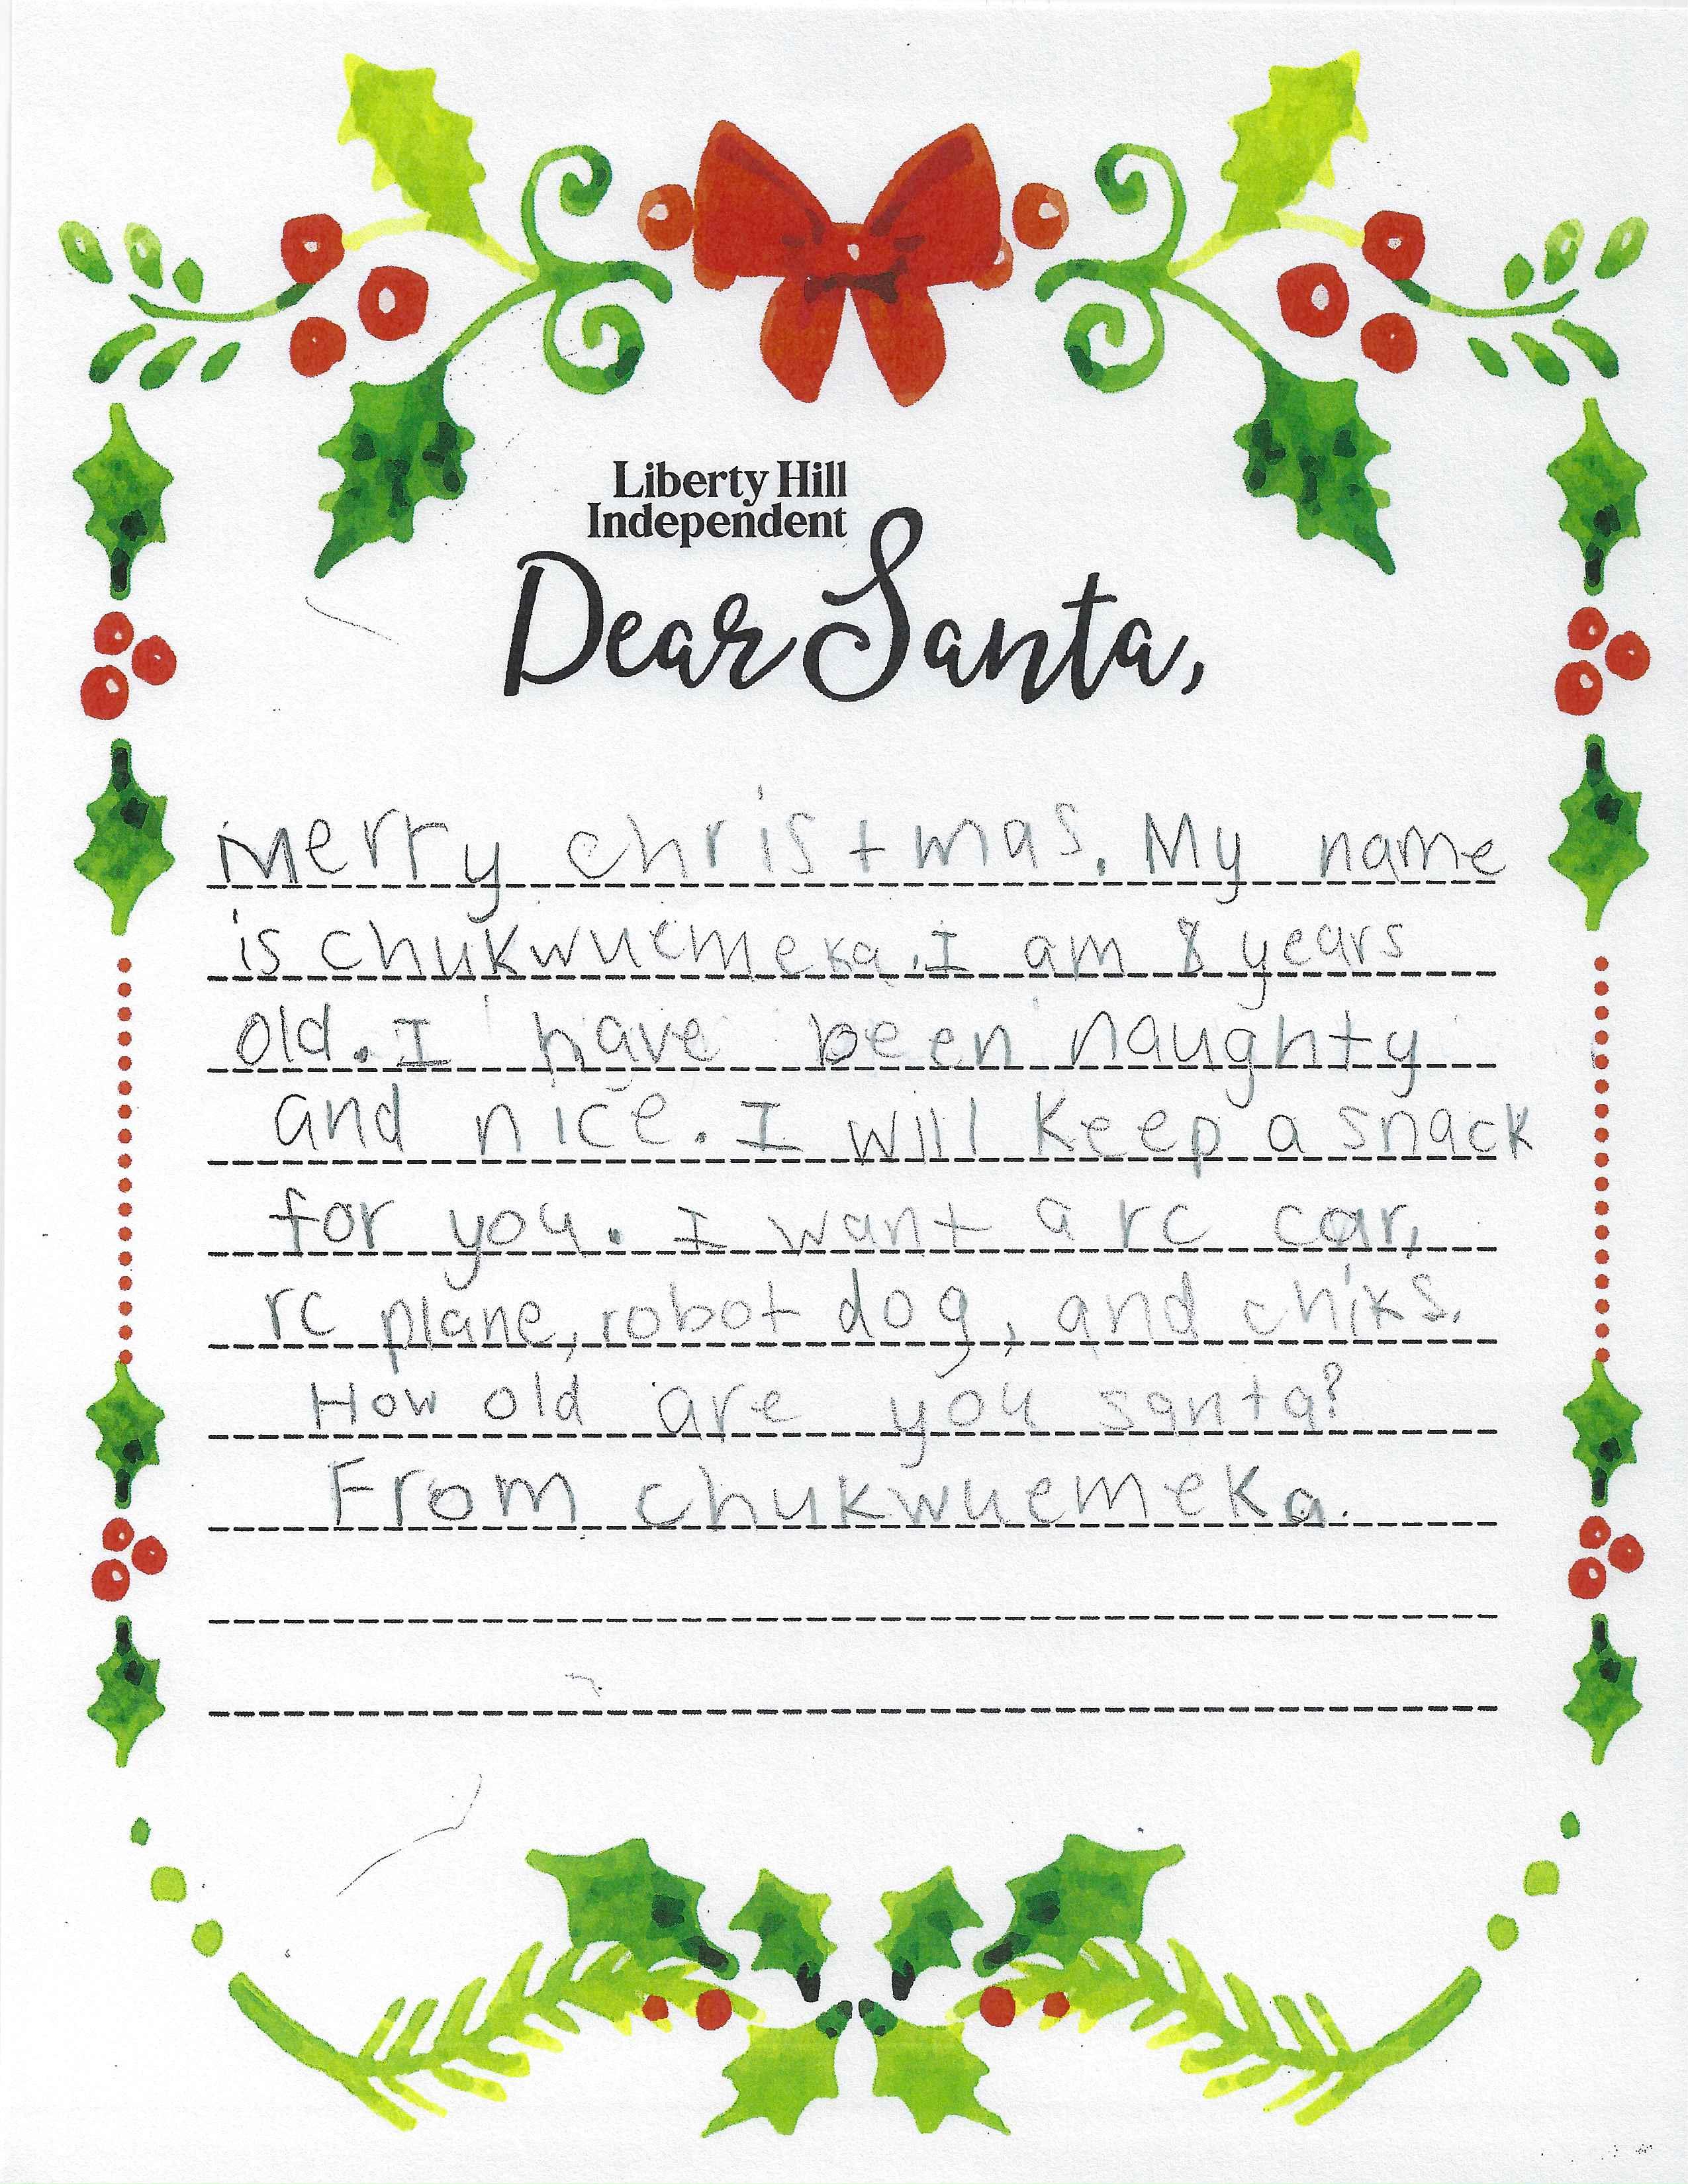 Liberty Hill
Independent
Dear Santa,
Merry christmas. My name
is chukwuemeka. I am 8 years
old. I have been naughty
and nice. I will keep a snack
for you. I want a rc car,
rc plane, robot dog, and chiks.
How old are you santa?
From chukwuemeka.